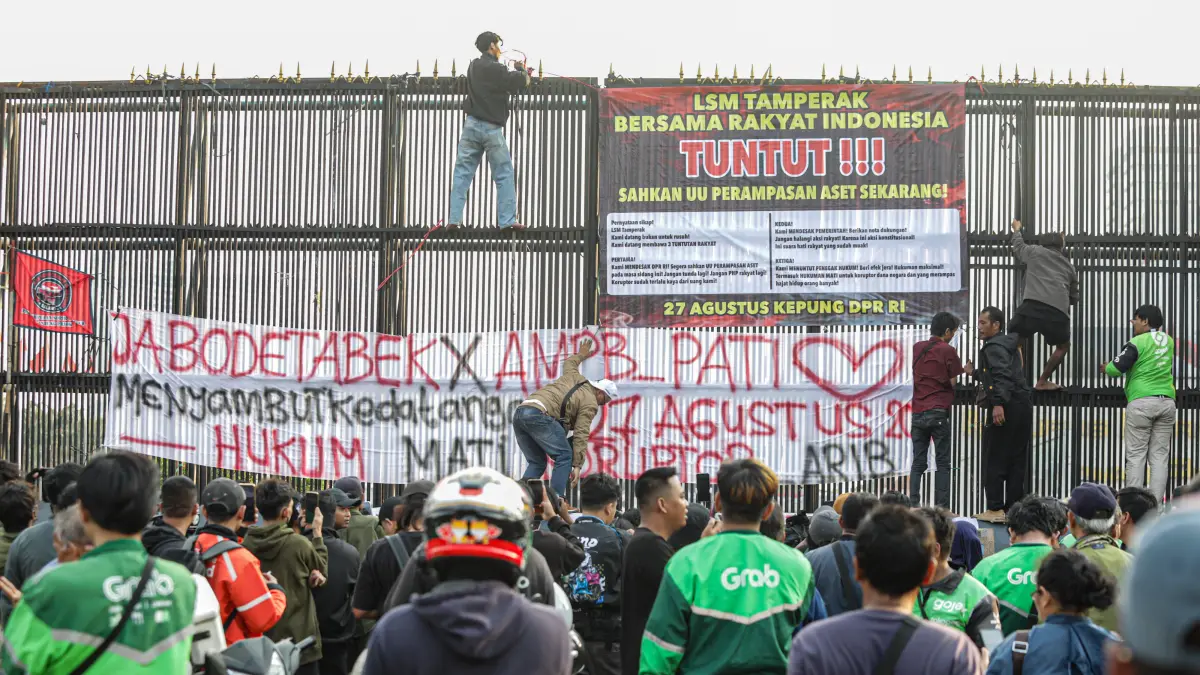 LSM TAMPERAK
BERSAMA RAKYAT INDONESIA
TUNTUT !!!
SAHKAN UU PERAMPASAN ASET SEKARANG!
Pernyataan sikap!
LSM Tamperak
Kami datang bukan untuk rusuh!
Kami datang membawa 3 TUNTUTAN RAKYAT
PERTAMA!
Kami MENDESAK DPR RI! Segera sahkan UU PERAMPASAN ASET
pada masa sidang ini! Jangan tunda lagi! Jangan PHP rakyat lagi!
Koruptor sudah terlalu kaya dari uang kami!
KEDUA!
Kami MENDESAK PEMERINTAH! Berikan nota dukungan!
Jangan halangi aksi rakyat! Karena ini aksi konstitusional!
Ini suara hati rakyat yang sudah muak!
KETIGA!
Kami MENUNTUT PENEGAK HUKUM! Beri efek jera! Hukuman maksimal!
Termasuk HUKUMAN MATI untuk koruptor dana negara dan yang merampas
hajat hidup orang banyak!
27 AGUSTUS KEPUNG DPR RI
JABODETABEK X AMPB_PATI
MENYAMBUT kedatang
27 AGUSTUS
HUKUM MATI KORUPTOR ARIB
Grab
Grab
Grab
gojek